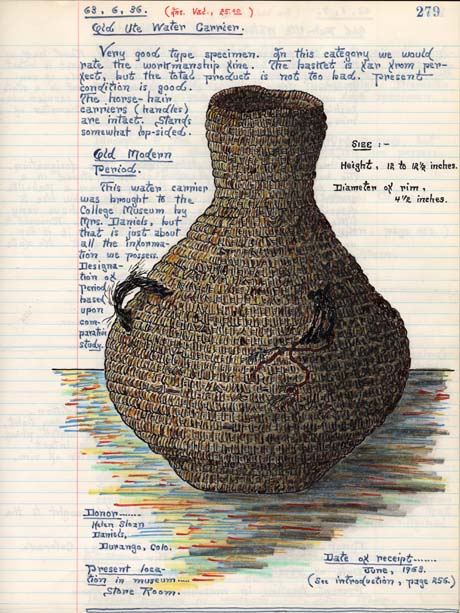 68. 6. 36. (Ins. Val., 25.00) 279
Old Ute Water Carrier.
Very good type specimen. In this category we would
rate the workmanship fine. The basket is far from per-
fect, but the total product is not too bad. Present
condition is good.
The horse-hair
carriers (handles)
are intact. Stands
somewhat lop-sided.
Old Modern
Period.
This water carrier
was brought to the
College Museum by
Mrs. Daniels, but
that is just about
all the informa-
tion we possess.
Designa-
tion of
Period
based
upon
com-
parative
study.
SIZE :-
Height, 12 to 12½ inches.
Diameter of rim,
4½ inches.
Donor.......
Helen Sloan
Daniels,
Durango, Colo.
Present loca-
tion in museum.....
Store Room.
Date of receipt.......
June, 1968.
(See introduction, page 256.)